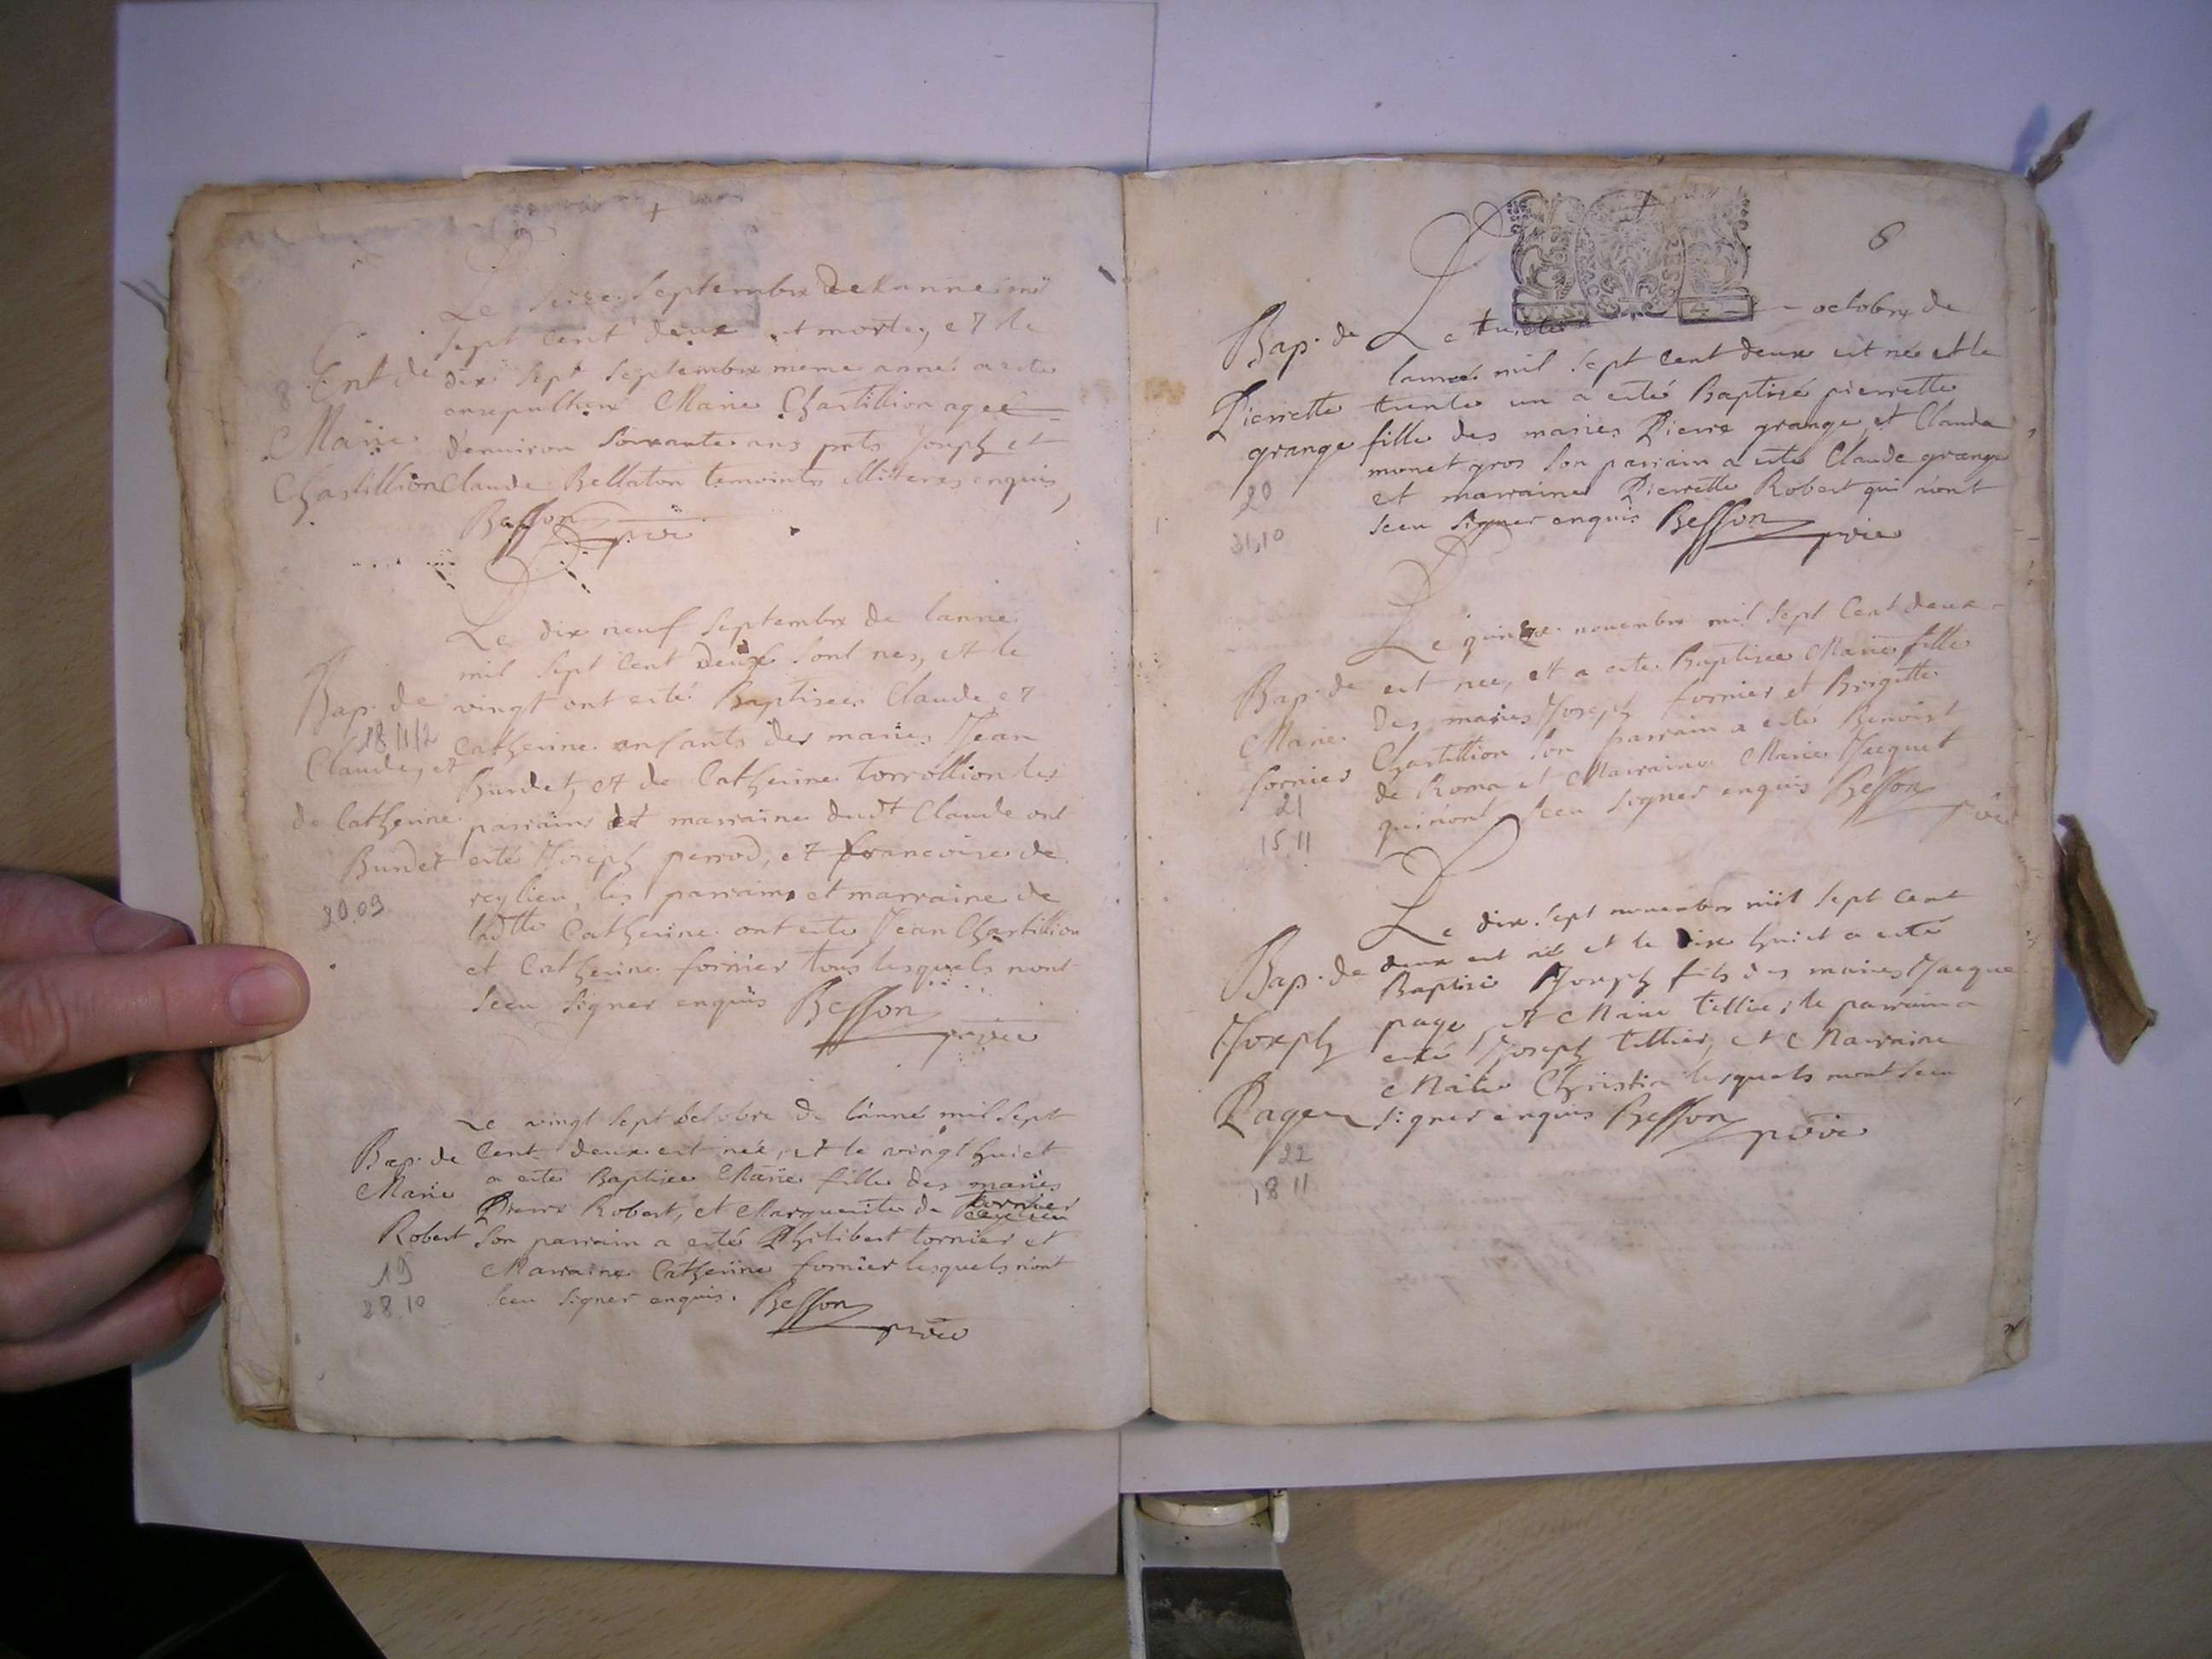 Le seize Septembre De Lanne mil
sept cent deux et morte, et le
Ent de dix sept Septembre meme anné a este
ensepulture Marie Chastillion agee
Marie denuiron soixante ans pnts Joseph et
Chastillion Claude Bellaton temoints illiteres enquis
Besson prie
Le dix neuf septembre de lanne
mil sept cent deux sont nes, et le
Bap. de vingt ont esté Baptisees Claude et
18 11/2
Claude, et Catherine enfants des maries Jean
Burdet, et de Catherine Torrollion les
de Catherine parains et marraine dudt Claude ont
Burdet esté Joseph perrod, et francoise de
20.09
reylieu, les parrains et marraine de
ladtte Catherine ont este Jean Chastillion
et Catherine fornier tous lesquels nont
sceu signer enquis Besson
prie
Le vingt sept octobre de lanné mil sept
Bap. de cent deux est née, et le vingt huict
Marie a este Baptisee Marie fille des maries
Pierre Robert, et Marguerite de tornier
Robert son parrain a esté Philibert tornier et
19
Marraine Catherine fornier lesquels n'ont
28 10
sceu signer enquis. Besson
prie
6
Bap. de Le trente octobre de
lanneé mil sept cent deux est née et le
Pierrette trente un a esté Baptisé pierrette
grange fille des maries Pierre grange, et Clauda
monet gros son parrain a este Claude grange
20
et marraine Pierrette Robert qui n'ont
31.10
sceu signer enquis Besson
prie
Le quinze nouembre mil sept Cent deux
Bap. de est nee, et a este Baptisee Marie fille
Marie Des maries Joseph fornier et Brigitte
Chastillion son parrain a esté Benoist
fornier de Roma et Marraine Marie Jacquet
21
qui n'ont sceu signer enquis Besson
15 11
prie
Le dix sept nouembre mil sept cent
deux est né et le dix huict a esté
Bap. de Baptisé Joseph fils des maries Jacque
page, et Marie tillier, le parrain a
Joseph esté Joseph tillier, et Marraine
Marie Christin lesquels n'ont sceu
Page signer enquis Besson
prie
22
18 11